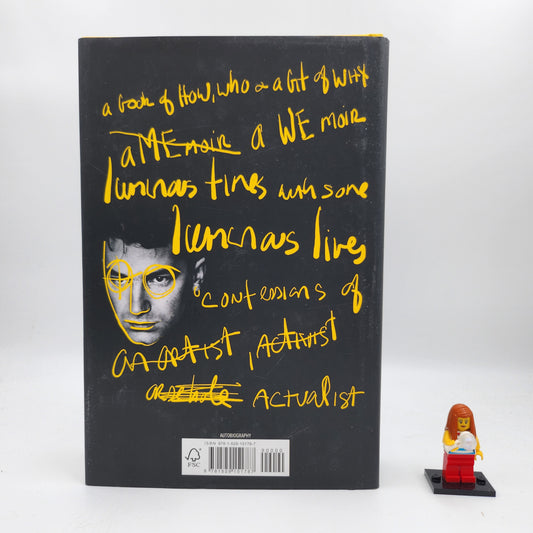 a Book of How, who & a bit of WHY
a MEmoir a WE moir
luminous times with some
luminous lives
confessions of
an artist, ACTIVIST
ACTUALIST
AUTOBIOGRAPHY
FSC
90000